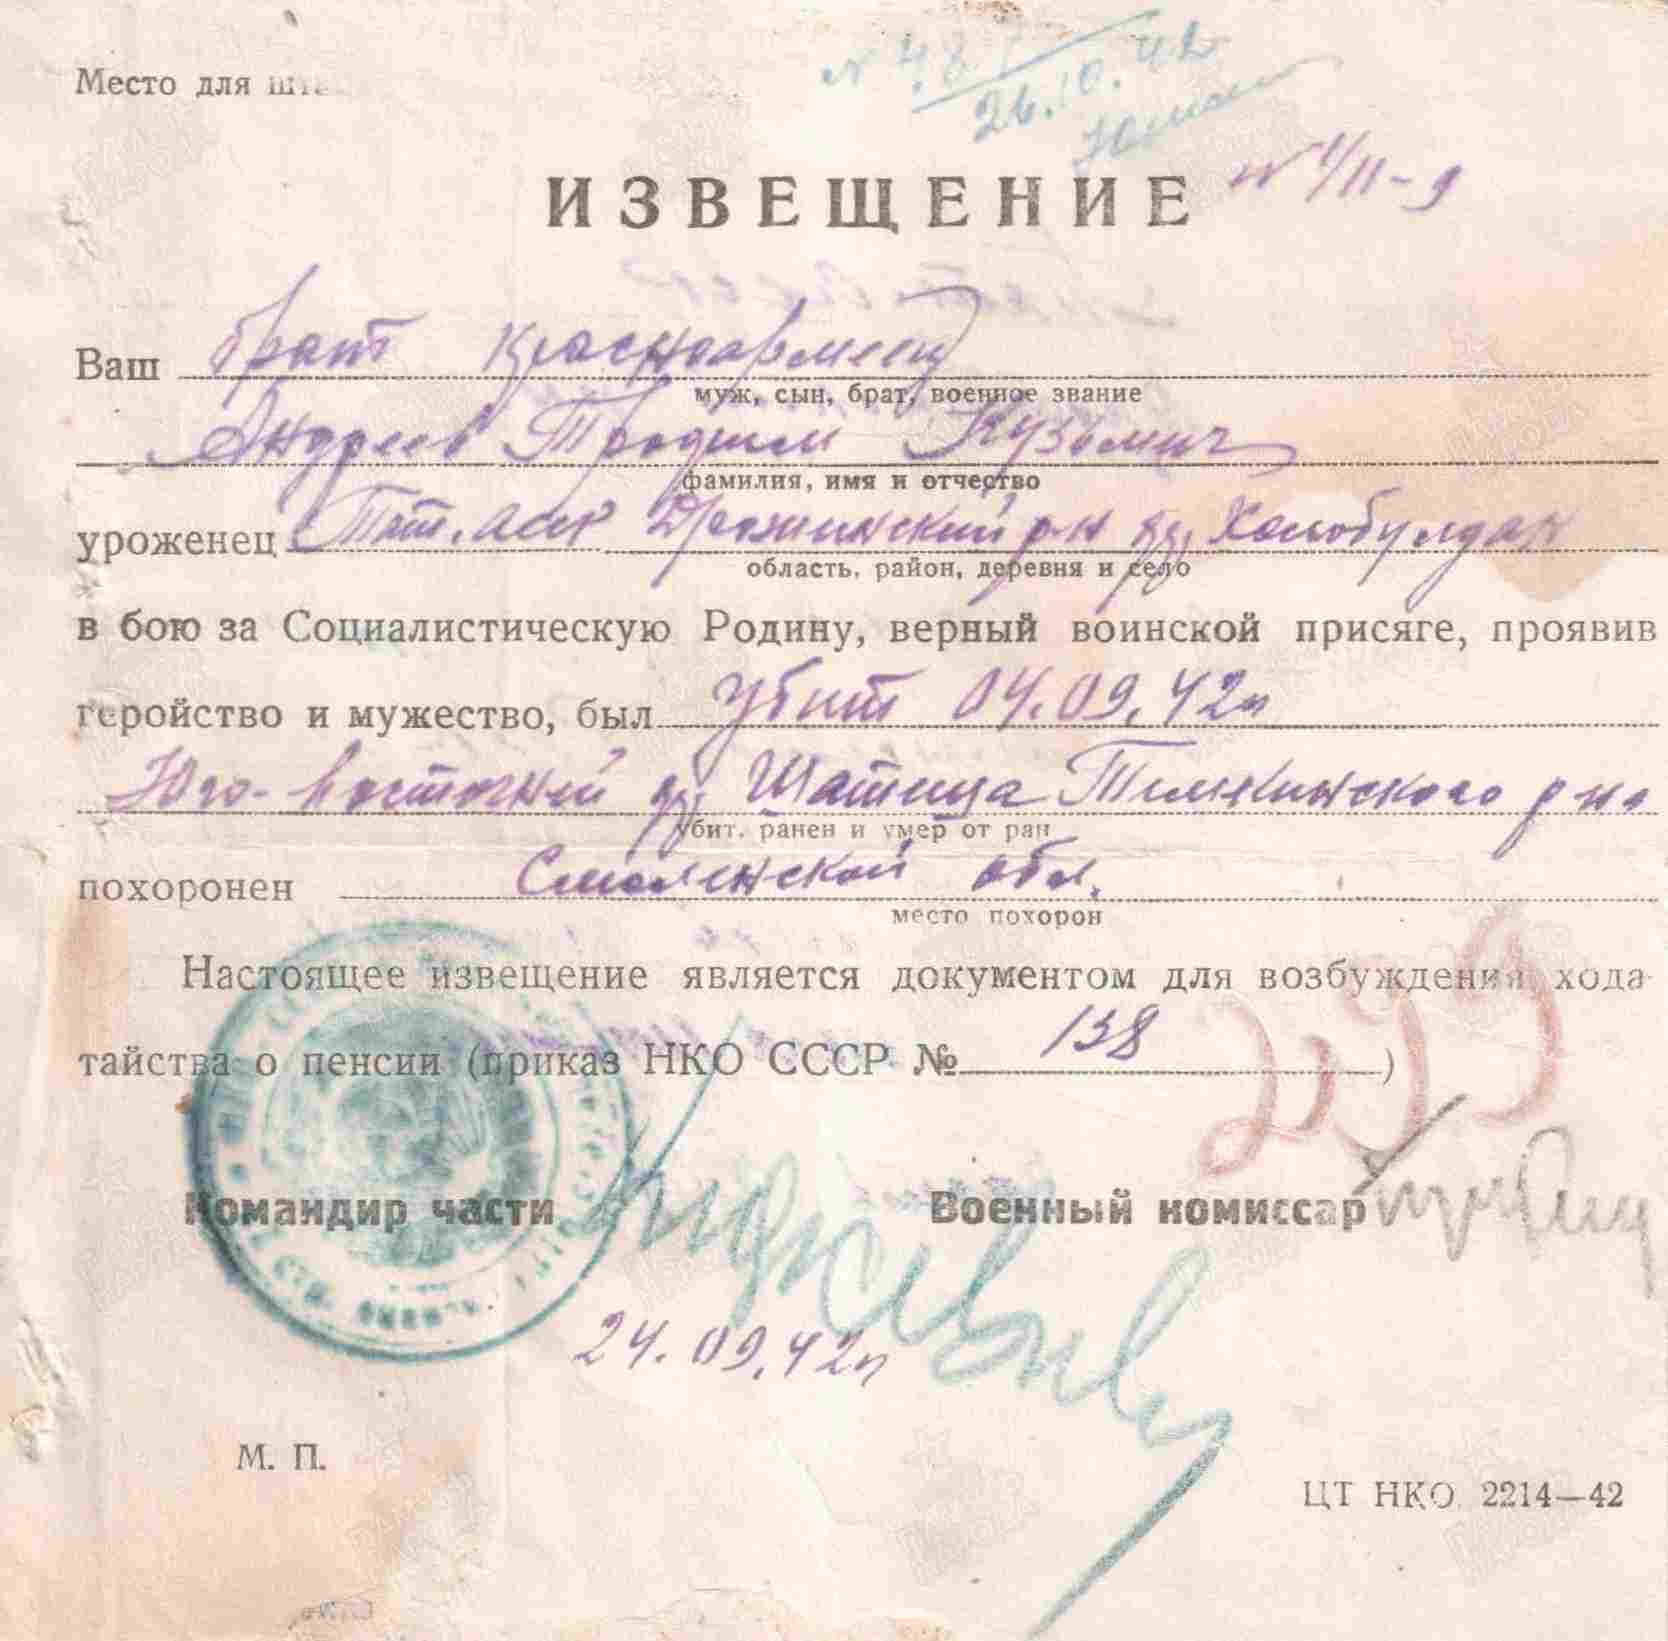 Место для шта
26.10.42
ИЗВЕЩЕНИЕ
Ваш брат красноармеец
муж, сын, брат, военное звание
Андреев Трофим Кузьмич
фамилия, имя и отчество
уроженец Тат. АССР Дрожжинский р-н д.
область, район, деревня и село
в бою за Социалистическую Родину, верный воинской присяге, проявив
геройство и мужество, был убит 04.09.42г
Юго-восточней д. Шатеша Темкинского р-на
убит, ранен и умер от ран
похоронен Смоленской обл.
место похорон
Настоящее извещение является документом для возбуждения хода-
тайства о пенсии (приказ НКО СССР № 138)
299
Командир части Военный комиссар
24.09.42г
М. П.
ЦТ НКО 2214—42